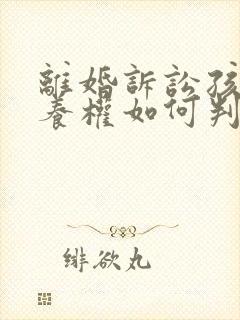 離婚訴訟孩
養權如何判
緋欲丸